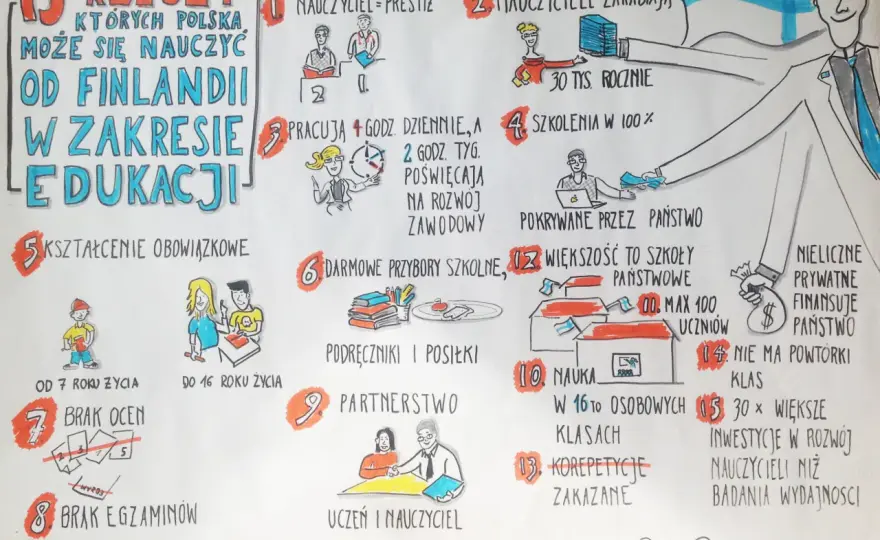 15 RZECZY
KTÓRYCH POLSKA
MOŻE SIĘ NAUCZYĆ
OD FINLANDII
W ZAKRESIE
EDUKACJI
1. NAUCZYCIEL = PRESTIŻ
2
1
2. NAUCZYCIELE ZARABIAJĄ
30 TYS. ROCZNIE
3. PRACUJĄ 4 GODZ. DZIENNIE, A
2 GODZ. TYG.
POŚWIĘCAJĄ
NA ROZWÓJ
ZAWODOWY
4. SZKOLENIA W 100%
POKRYWANE PRZEZ PAŃSTWO
5 KSZTAŁCENIE OBOWIĄZKOWE
OD 7 ROKU ŻYCIA
DO 16 ROKU ŻYCIA
6. DARMOWE PRZYBORY SZKOLNE,
PODRĘCZNIKI I POSIŁKI
7 BRAK OCEN
2 3 4 5
8. BRAK EGZAMINÓW
9. PARTNERSTWO
UCZEŃ I NAUCZYCIEL
12 WIĘKSZOŚĆ TO SZKOŁY
PAŃSTWOWE
11. MAX 100
UCZNIÓW
NIELICZNE
PRYWATNE
FINANSUJE
PAŃSTWO
$
10. NAUKA
W 16TO OSOBOWYCH
KLASACH
13. KOREPETYCJE
ZAKAZANE
14 NIE MA POWTÓRKI
KLAS
15 30 x WIĘKSZE
INWESTYCJE W ROZWÓJ
NAUCZYCIELI NIŻ
BADANIA WYDAJNOŚCI